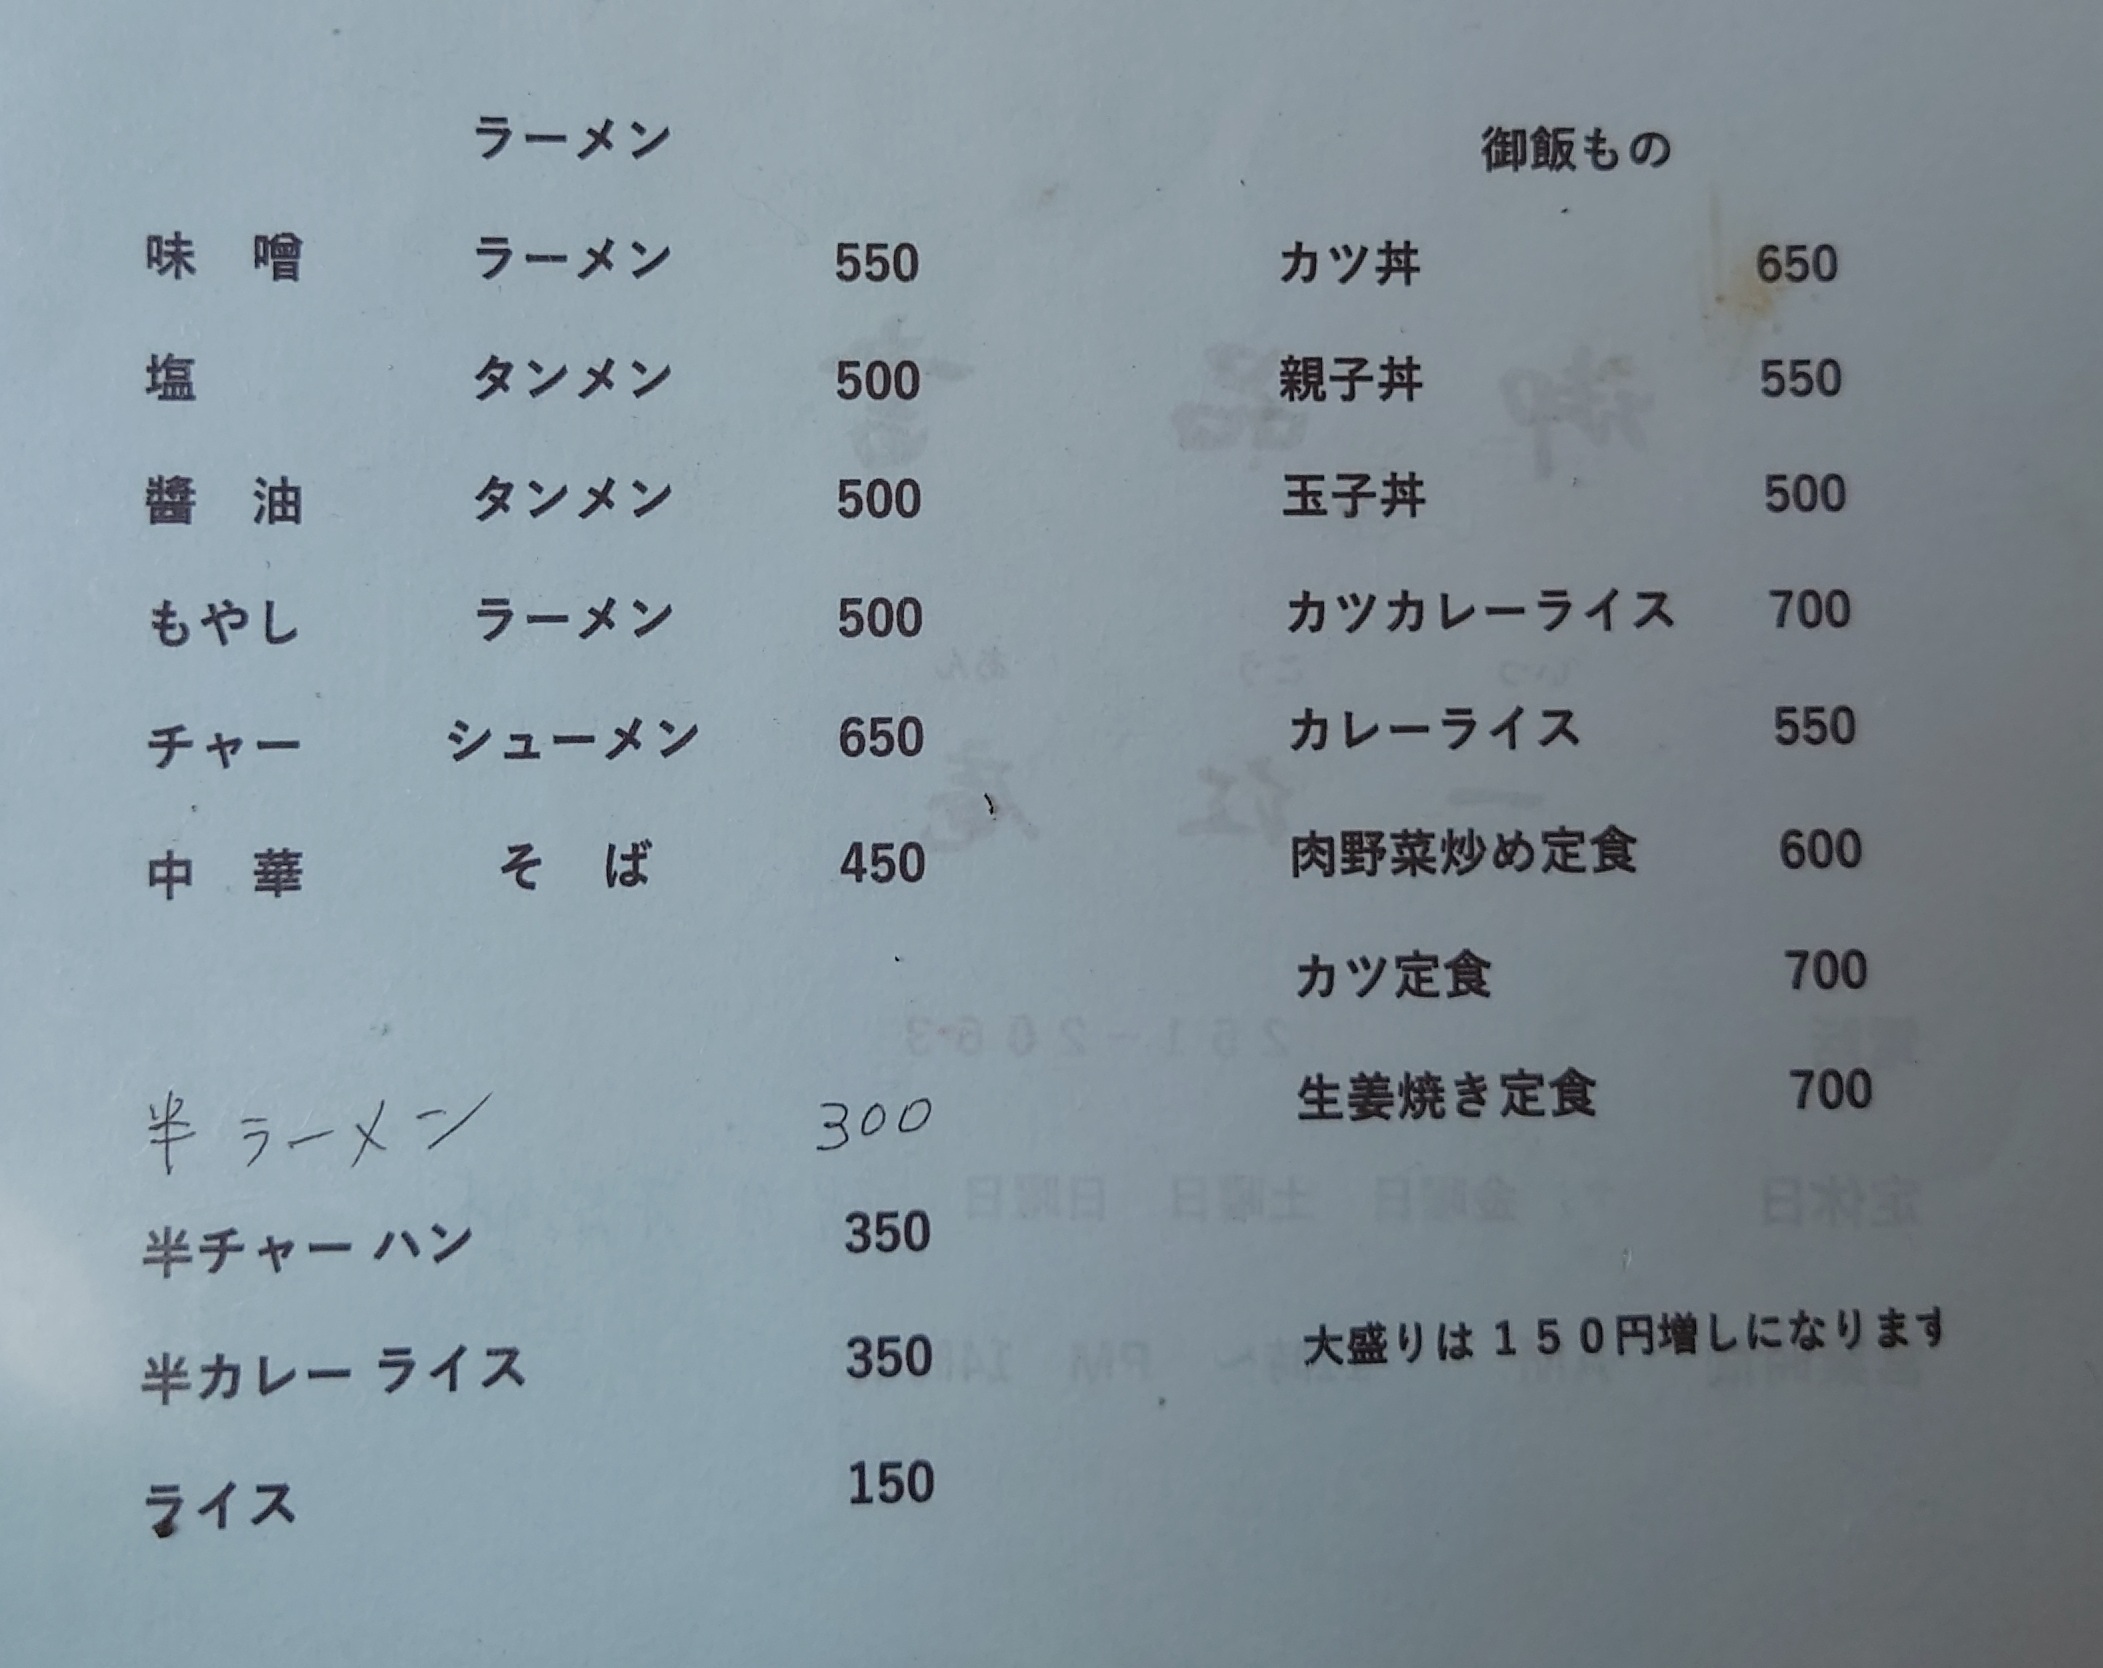 ラーメン
味噌 ラーメン 550
塩 タンメン 500
醬油 タンメン 500
もやし ラーメン 500
チャー シューメン 650
中華 そば 450
半ラーメン 300
半チャーハン 350
半カレーライス 350
ライス 150
御飯もの
カツ丼 650
親子丼 550
玉子丼 500
カツカレーライス 700
カレーライス 550
肉野菜炒め定食 600
カツ定食 700
生姜焼き定食 700
大盛りは１５０円増しになります